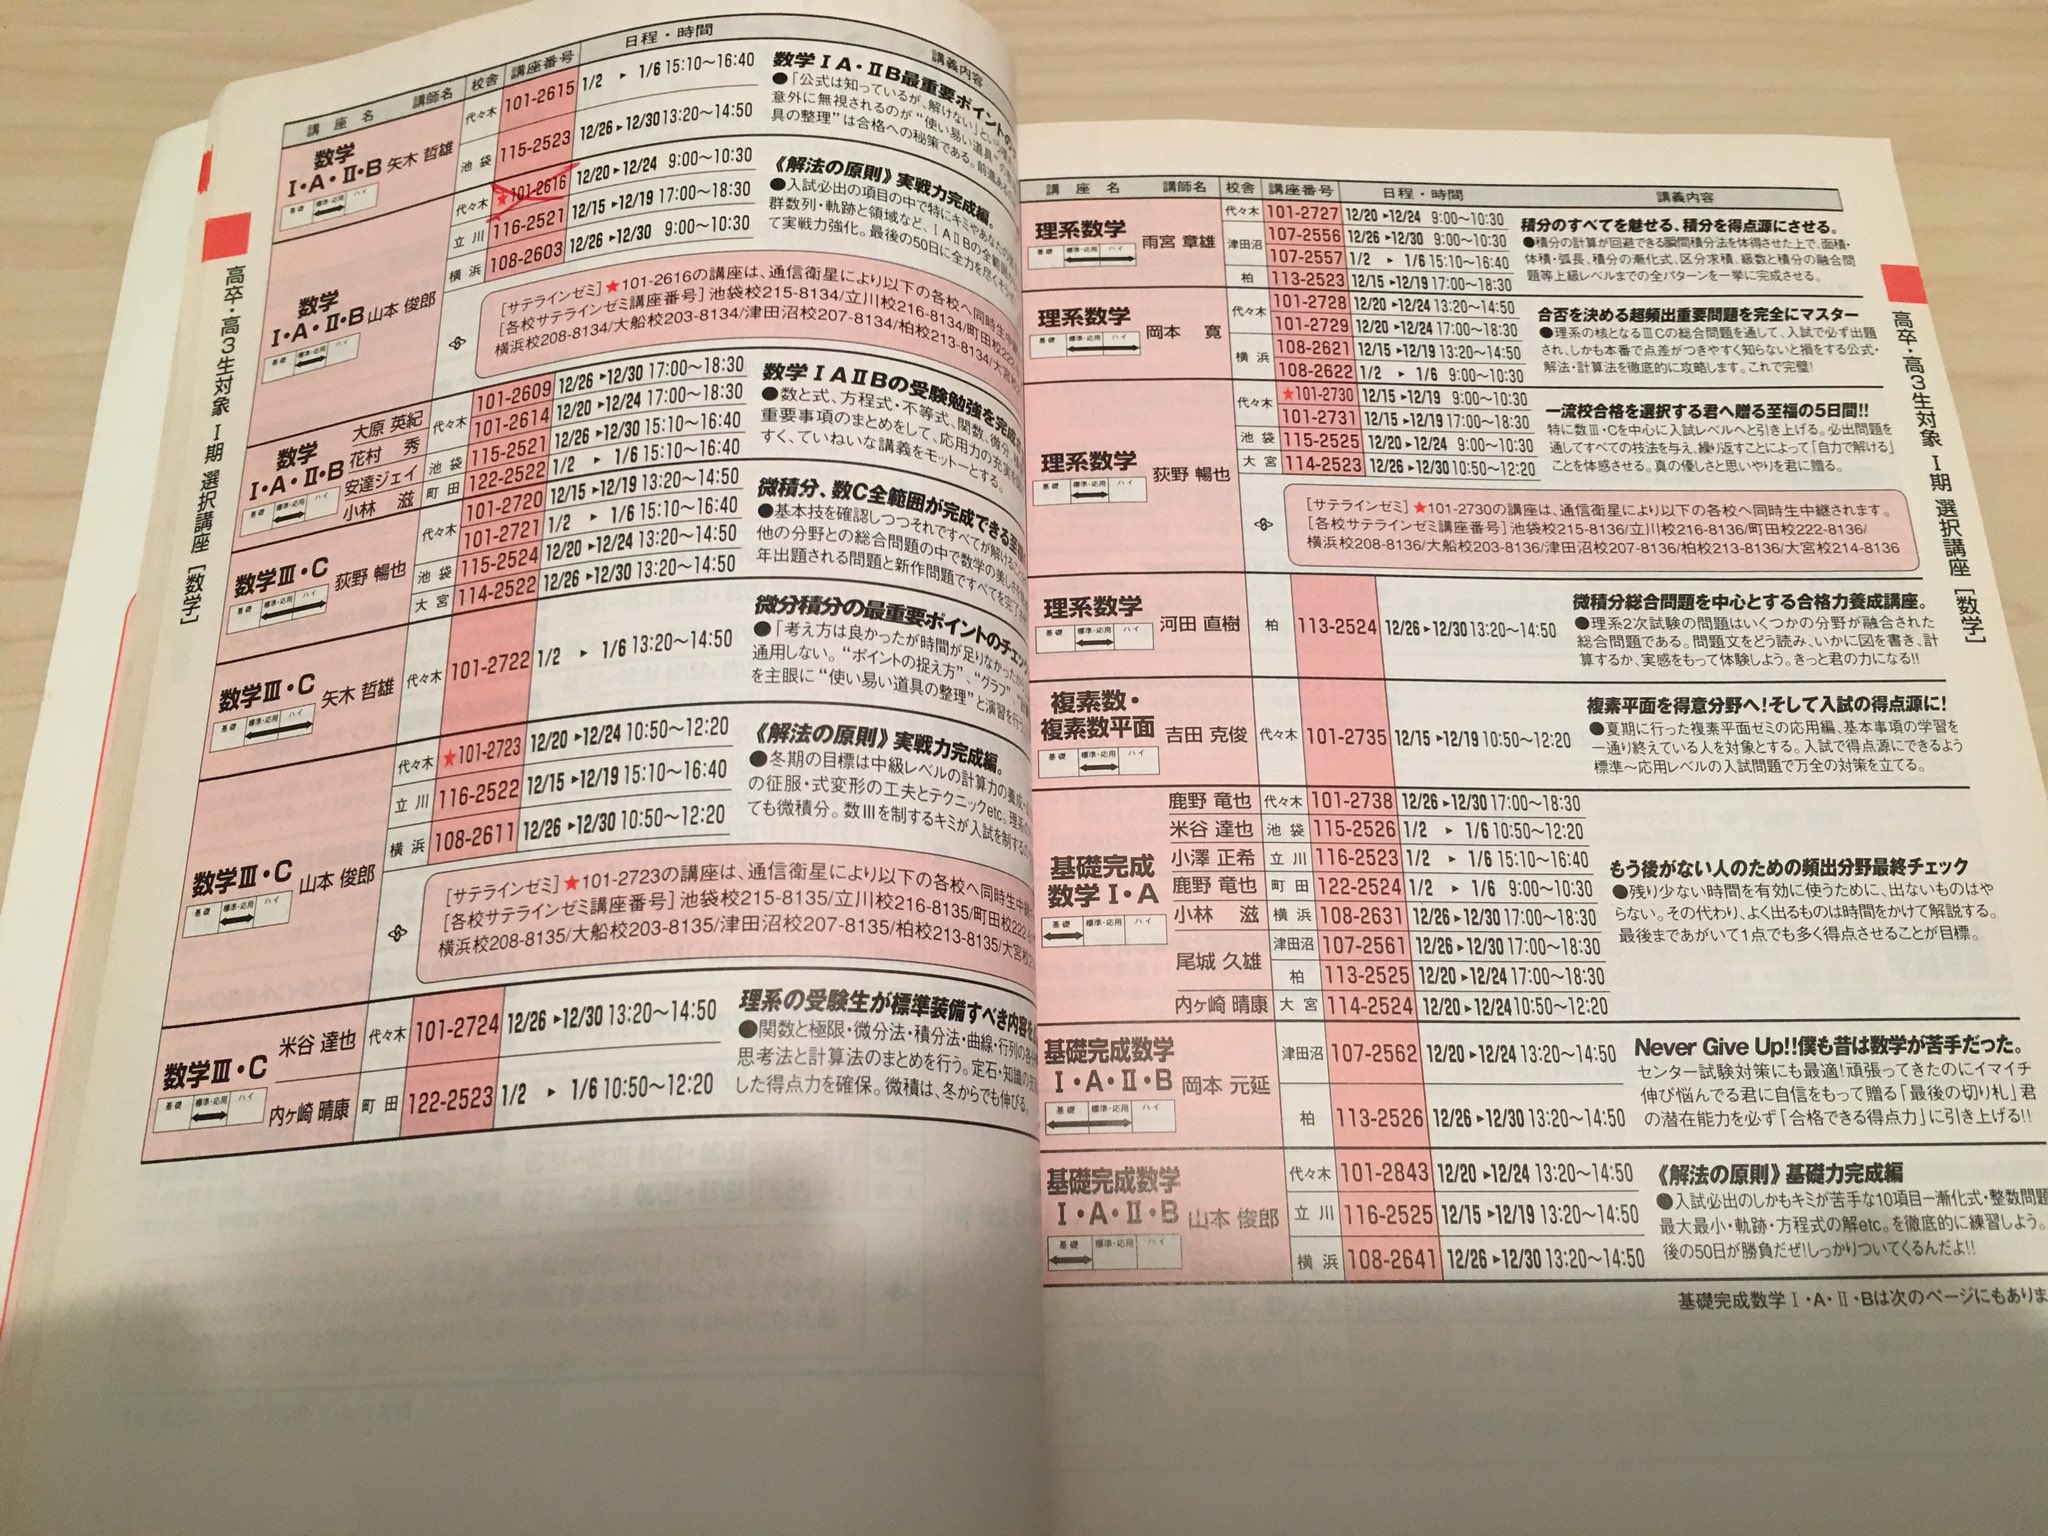 高卒・高3生対象 Ⅰ期 選択講座 [数学]
講座名 講師名 校舎 講座番号 日程・時間 講義内容
数学
Ⅰ・A・Ⅱ・B 矢木 哲雄
基礎 標準・応用 ハイ
代々木 101-2615 1/2 ▸ 1/6 15:10〜16:40
池袋 115-2523 12/26▸12/30 13:20〜14:50
数学ⅠA・ⅡB最重要ポイントの
●「公式は知っているが、解けない」という
意外に無視されるのが“使い易い道具”の
具の整理”は合格への秘策である。前進ある
数学
Ⅰ・A・Ⅱ・B 山本 俊郎
基礎 標準・応用 ハイ
代々木 ★101-2616 12/20▸12/24 9:00〜10:30
立川 116-2521 12/15▸12/19 17:00〜18:30
横浜 108-2603 12/26▸12/30 9:00〜10:30
《解法の原則》実戦力完成編。
●入試必出の項目の中で特にキミやあなたの
群数列・軌跡と領域など、ⅠAⅡBの全範囲
て実戦力強化。最後の50日に全力を尽くそうぜ
[サテラインゼミ]★101-2616の講座は、通信衛星により以下の各校へ同時生中継
[各校サテラインゼミ講座番号]池袋校215-8134/立川校216-8134/町田校222-
横浜校208-8134/大船校203-8134/津田沼校207-8134/柏校213-8134/大宮校
数学
Ⅰ・A・Ⅱ・B
基礎 標準・応用 ハイ
大原 英紀
花村 秀
安達ジェイ
小林 滋
代々木 101-2609 12/26▸12/30 17:00〜18:30
101-2614 12/20▸12/24 17:00〜18:30
池袋 115-2521 12/26▸12/30 15:10〜16:40
町田 122-2522 1/2 ▸ 1/6 15:10〜16:40
数学ⅠAⅡBの受験勉強を完成
●数と式、方程式・不等式、関数、微分、積
重要事項のまとめをして、応用力の充実を
すく、ていねいな講義をモットーとする。
数学Ⅲ・C 荻野 暢也
基礎 標準・応用 ハイ
代々木 101-2720 12/15▸12/19 13:20〜14:50
101-2721 1/2 ▸ 1/6 15:10〜16:40
池袋 115-2524 12/20▸12/24 13:20〜14:50
大宮 114-2522 12/26▸12/30 13:20〜14:50
微積分、数C全範囲が完成できる至福
●基本技を確認しつつそれですべてが解ける
他の分野との総合問題の中で数学の美しさ
年出題される問題と新作問題ですべてを完了
数学Ⅲ・C 矢木 哲雄
基礎 標準・応用 ハイ
代々木 101-2722 1/2 ▸ 1/6 13:20〜14:50
微分積分の最重要ポイントのチェック
●「考え方は良かったが時間が足りなかった
通用しない。“ポイントの捉え方”、“グラフ”
を主眼に“使い易い道具の整理”と演習を行
数学Ⅲ・C 山本 俊郎
基礎 標準・応用 ハイ
代々木 ★101-2723 12/20▸12/24 10:50〜12:20
立川 116-2522 12/15▸12/19 15:10〜16:40
横浜 108-2611 12/26▸12/30 10:50〜12:20
《解法の原則》実戦力完成編。
●冬期の目標は中級レベルの計算力の養成
の征服・式変形の工夫とテクニックetc。理系の
ても微積分。数Ⅲを制するキミが入試を制する
[サテラインゼミ]★101-2723の講座は、通信衛星により以下の各校へ同時生中継
[各校サテラインゼミ講座番号]池袋校215-8135/立川校216-8135/町田校222-
横浜校208-8135/大船校203-8135/津田沼校207-8135/柏校213-8135/大宮校
数学Ⅲ・C
基礎 標準・応用 ハイ
米谷 達也 代々木 101-2724 12/26▸12/30 13:20〜14:50
内ヶ崎 晴康 町田 122-2523 1/2 ▸ 1/6 10:50〜12:20
理系の受験生が標準装備すべき内容を
●関数と極限・微分法・積分法・曲線・行列の各
思考法と計算法のまとめを行う。定石・知識の
した得点力を確保。微積は、冬からでも伸びる。
講座名 講師名 校舎 講座番号 日程・時間 講義内容
理系数学 雨宮 章雄
基礎 標準・応用 ハイ
代々木 101-2727 12/20▸12/24 9:00〜10:30
津田沼 107-2556 12/26▸12/30 9:00〜10:30
107-2557 1/2 ▸ 1/6 15:10〜16:40
柏 113-2523 12/15▸12/19 17:00〜18:30
積分のすべてを魅せる、積分を得点源にさせる。
●積分の計算が回避できる瞬間積分法を体得させた上で、面積・
体積・弧長、積分の漸化式、区分求積、級数と積分の融合問
題等上級レベルまでの全パターンを一挙に完成させる。
理系数学 岡本 寛
基礎 標準・応用 ハイ
代々木 101-2728 12/20▸12/24 13:20〜14:50
101-2729 12/20▸12/24 17:00〜18:30
横浜 108-2621 12/15▸12/19 13:20〜14:50
108-2622 1/2 ▸ 1/6 9:00〜10:30
合否を決める超頻出重要問題を完全にマスター
●理系の核となるⅢCの総合問題を通して、入試で必ず出題
され、しかも本番で点差がつきやすく知らないと損をする公式・
解法・計算法を徹底的に攻略します。これで完璧!
理系数学 荻野 暢也
基礎 標準・応用 ハイ
代々木 ★101-2730 12/15▸12/19 9:00〜10:30
101-2731 12/15▸12/19 17:00〜18:30
池袋 115-2525 12/20▸12/24 9:00〜10:30
大宮 114-2523 12/26▸12/30 10:50〜12:20
一流校合格を選択する君へ贈る至福の5日間!!
特に数Ⅲ・Cを中心に入試レベルへと引き上げる。必出問題を
通してすべての技法を与え、繰り返すことによって「自力で解ける」
ことを体感させる。真の優しさと思いやりを君に贈る。
[サテラインゼミ]★101-2730の講座は、通信衛星により以下の各校へ同時生中継されます。
[各校サテラインゼミ講座番号]池袋校215-8136/立川校216-8136/町田校222-8136/
横浜校208-8136/大船校203-8136/津田沼校207-8136/柏校213-8136/大宮校214-8136
理系数学 河田 直樹
基礎 標準・応用 ハイ
柏 113-2524 12/26▸12/30 13:20〜14:50
微積分総合問題を中心とする合格力養成講座。
●理系2次試験の問題はいくつかの分野が融合された
総合問題である。問題文をどう読み、いかに図を書き、計
算するか、実感をもって体験しよう。きっと君の力になる!!
複素数・
複素数平面 吉田 克俊
基礎 標準・応用 ハイ
代々木 101-2735 12/15▸12/19 10:50〜12:20
複素平面を得意分野へ!そして入試の得点源に!
●夏期に行った複素平面ゼミの応用編、基本事項の学習を
一通り終えている人を対象とする。入試で得点源にできるよう
標準〜応用レベルの入試問題で万全の対策を立てる。
基礎完成
数学Ⅰ・A
基礎 標準・応用 ハイ
鹿野 竜也 代々木 101-2738 12/26▸12/30 17:00〜18:30
米谷 達也 池袋 115-2526 1/2 ▸ 1/6 10:50〜12:20
小澤 正希 立川 116-2523 1/2 ▸ 1/6 15:10〜16:40
鹿野 竜也 町田 122-2524 1/2 ▸ 1/6 9:00〜10:30
小林 滋 横浜 108-2631 12/26▸12/30 17:00〜18:30
尾城 久雄 津田沼 107-2561 12/26▸12/30 17:00〜18:30
柏 113-2525 12/20▸12/24 17:00〜18:30
内ヶ崎 晴康 大宮 114-2524 12/20▸12/24 10:50〜12:20
もう後がない人のための頻出分野最終チェック
●残り少ない時間を有効に使うために、出ないものはや
らない。その代わり、よく出るものは時間をかけて解説する。
最後まであがいて1点でも多く得点させることが目標。
基礎完成数学
Ⅰ・A・Ⅱ・B 岡本 元延
基礎 標準・応用 ハイ
津田沼 107-2562 12/20▸12/24 13:20〜14:50
柏 113-2526 12/26▸12/30 13:20〜14:50
Never Give Up!!僕も昔は数学が苦手だった。
センター試験対策にも最適!頑張ってきたのにイマイチ
伸び悩んでる君に自信をもって贈る「最後の切り札」君
の潜在能力を必ず「合格できる得点力」に引き上げる!!
基礎完成数学
Ⅰ・A・Ⅱ・B 山本 俊郎
基礎 標準・応用 ハイ
代々木 101-2843 12/20▸12/24 13:20〜14:50
立川 116-2525 12/15▸12/19 13:20〜14:50
横浜 108-2641 12/26▸12/30 13:20〜14:50
《解法の原則》基礎力完成編
●入試必出のしかもキミが苦手な10項目ー漸化式・整数問題
最大最小・軌跡・方程式の解etc。を徹底的に練習しよう。
後の50日が勝負だぜ!しっかりついてくるんだよ!!
基礎完成数学Ⅰ・A・Ⅱ・Bは次のページにもありま
高卒・高3生対象 Ⅰ期 選択講座 [数学]